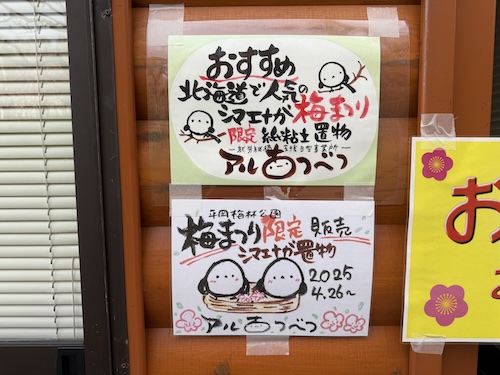 おすすめ
北海道で人気の
シマエナガ 梅まつり
限定 紙粘土置物
アル
あつべつ
平岡梅林公園
梅まつり限定 販売
シマエナガ置物
2025
4.26～
アル
あつべつ
お